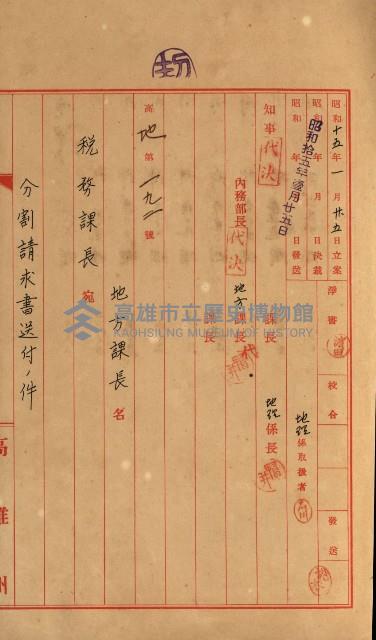 昭和十五年一月廿五日立案
昭和 年 月 日決裁
昭和 年 月 日發送
昭和拾五年壹月廿五日
淨書
校合
發送
地理係取扱者
知事
代決
內務部長
代決
地方課長
代
課長
地理係長
高地第一九二號
地方課長名
税務課長宛
分割請求書送付ノ件
高雄州
高雄市立歷史博物館
KAOHSIUNG MUSEUM OF HISTORY